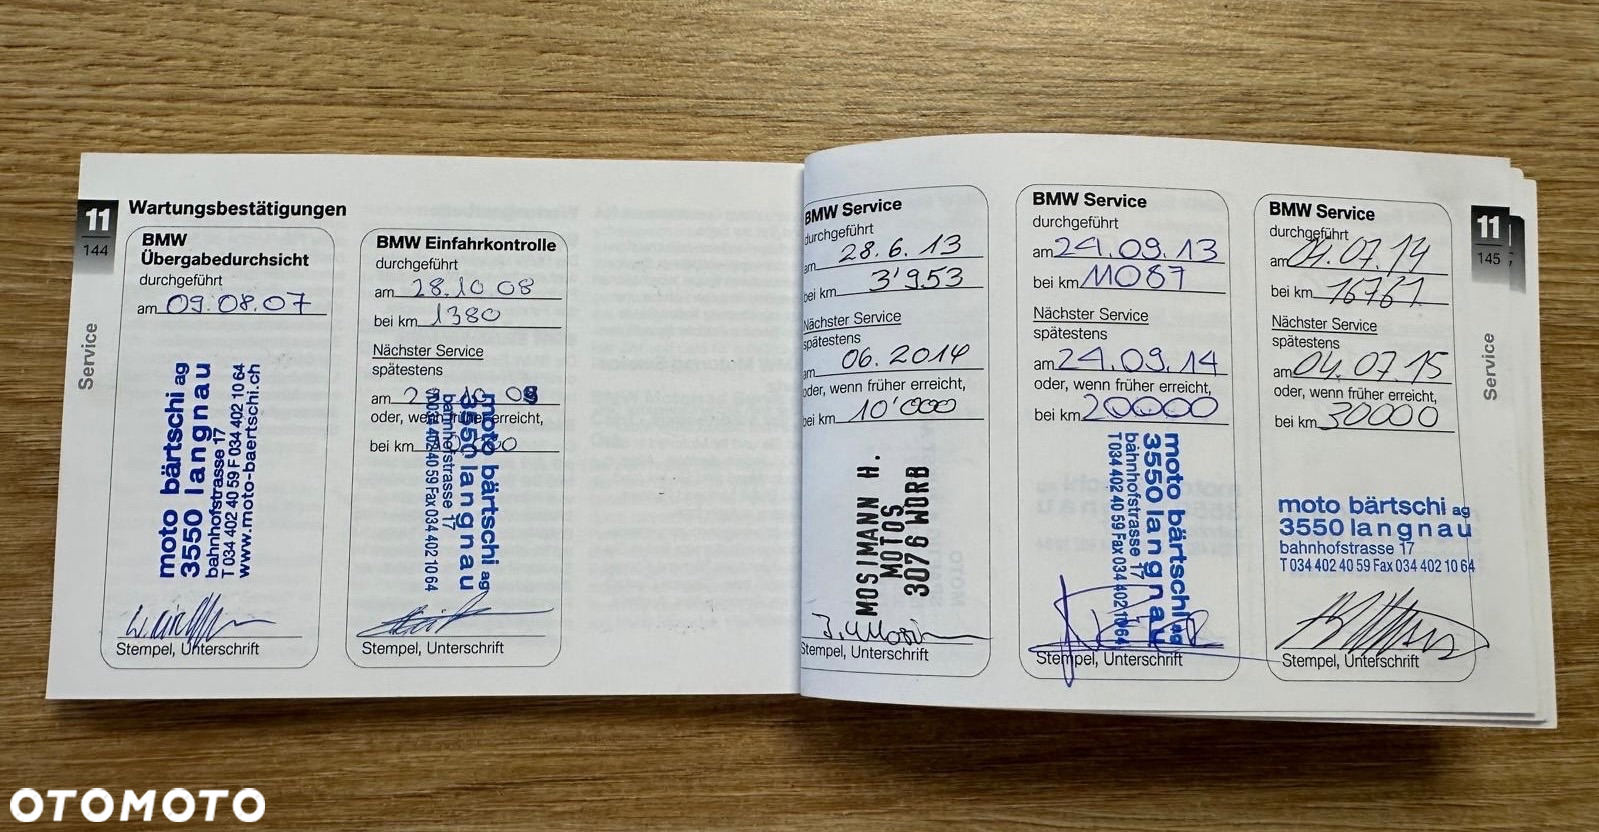 11
144
Service
Wartungsbestätigungen
BMW
Übergabedurchsicht
durchgeführt
am 09.08.07
moto bärtschi ag
3550 langnau
bahnhofstrasse 17
T 034 402 40 59 F 034 402 10 64
www.moto-baertschi.ch
Stempel, Unterschrift
BMW Einfahrkontrolle
durchgeführt
am 28.10 08
bei km 1380
Nächster Service
spätestens
am 28 10 09
oder, wenn früher erreicht,
bei km 10000
moto bärtschi ag
3550 langnau
bahnhofstrasse 17
T 034 402 40 59 Fax 034 402 10 64
Stempel, Unterschrift
BMW Service
durchgeführt
am 28.6.13
bei km 3'953
Nächster Service
spätestens
am 06.2014
oder, wenn früher erreicht,
bei km 10'000
MOSIMANN H.
MOTOS
3076 WORB
Stempel, Unterschrift
BMW Service
durchgeführt
am 24.09.13
bei km 11087
Nächster Service
spätestens
am 24.09.14
oder, wenn früher erreicht,
bei km 20000
moto bärtschi ag
3550 langnau
bahnhofstrasse 17
T 034 402 40 59 Fax 034 402 10 64
Stempel, Unterschrift
BMW Service
durchgeführt
am 04.07.14
bei km 16761
Nächster Service
spätestens
am 04.07.15
oder, wenn früher erreicht,
bei km 30000
moto bärtschi ag
3550 langnau
bahnhofstrasse 17
T 034 402 40 59 Fax 034 402 10 64
Stempel, Unterschrift
11
145
Service
OTOMOTO